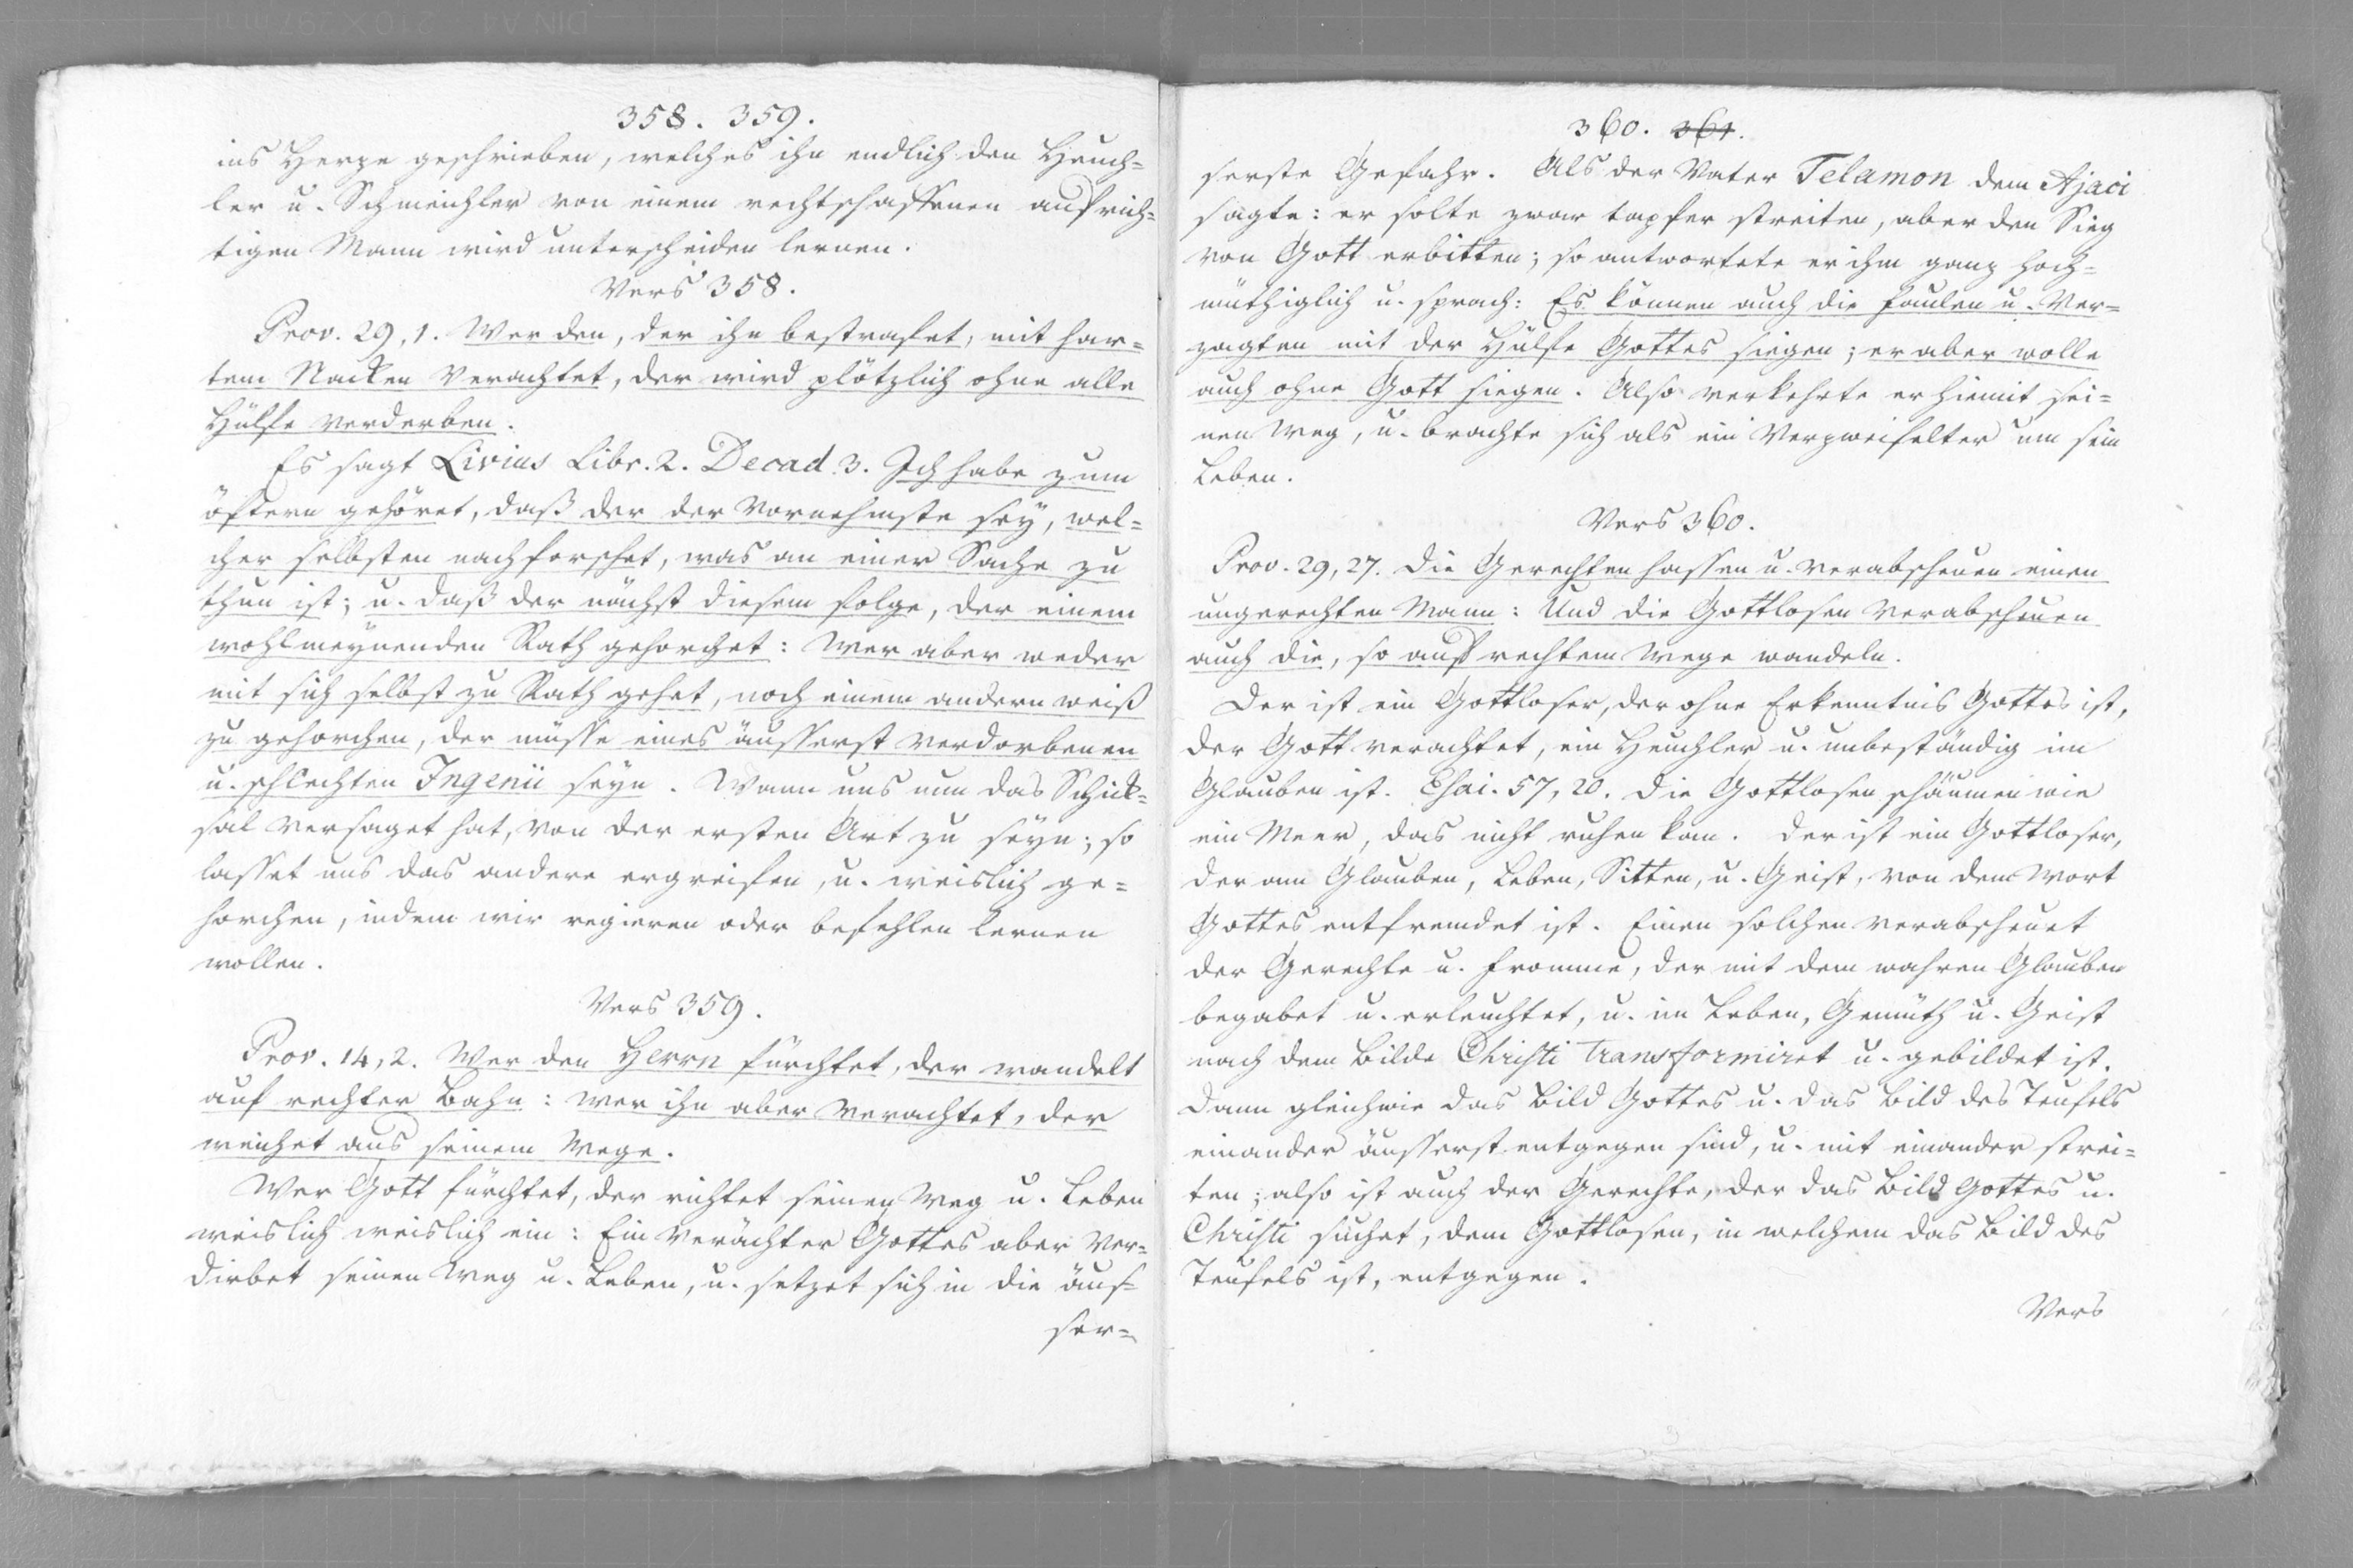 358. 359.
ins Herze geschrieben, welches ihn endlich den Heuch=
ler u. Schmeichler von einem rechtschaffenen aufrich=
tigen Mann wird unterscheiden lernen.
Vers 358.
Prov. 29, 1. Wer den, der ihn bestrafet, mit har=
tem Nacken verachtet, der wird plötzlich ohne alle
Hülfe verderben.
Es sagt Livius Libr. 2. Decad. 3. Ich habe zum
öftern gehöret, daß der der Vornehmste sey, wel=
cher selbsten nachforschet, was an einer Sache zu
thun ist; u. daß der nächst diesem folge, der einem
wohlmeynenden Rath gehorchet: Wer aber weder
mit sich selbst zu Rath gehet, noch einem andern weiß
zu gehorchen, der müsse eines äusserst verdorbenen
u. schlechten Ingenii seyn. Wann uns nun das Schick=
sal versaget hat, von der ersten Art zu seyn; so
lasset uns das andere ergreifen, u. weislich ge=
horchen, indem wir regieren oder befehlen lernen
wollen.
Vers 359.
Prov. 14, 2. Wer den Herrn fürchtet, der wandelt
auf rechter Bahn: wer ihn aber verachtet, der
weichet aus seinem Wege.
Wer Gott fürchtet, der richtet seinen Weg u. Leben
weislich weislich ein: Ein Verächter Gottes aber ver=
dirbet seinen Weg u. Leben, u. setzet sich in die äus=
ser=
360. 361.
serste Gefahr. Als der Vater Telamon dem Ajaci
sagte: er solte zwar tapfer streiten, aber den Sieg
von Gott erbitten; so antwortete er ihm ganz hoch=
müthiglich u. sprach: Es können auch die faulen u. Ver=
zagten mit der Hülfe Gottes siegen; er aber wolle
auch ohne Gott siegen. Also verkehrte er hiemit sei=
nen Weg, u. brachte sich als ein Verzweifelter um sein
Leben.
Vers 360.
Prov. 29, 27. Die Gerechten hassen u. verabscheuen einen
ungerechten Mann: Und die Gottlosen verabscheuen
auch die, so auf rechtem Wege wandeln.
Der ist ein Gottloser, der ohne Erkenntnis Gottes ist,
der Gott verachtet, ein Heuchler u. unbeständig im
Glauben ist. Esai. 57, 20. Die Gottlosen schäumen wie
ein Meer, das nicht ruhen kan. Der ist ein Gottloser,
der am Glauben, Leben, Sitten, u. Geist, von dem Wort
Gottes entfremdet ist. Einen solchen verabscheuet
der Gerechte u. Fromme, der mit dem wahren Glauben
begabet u. erleuchtet, u. im Leben, Gemüth u. Geist
nach dem Bilde Christi transformiret u. gebildet ist.
Dann gleichwie das Bild Gottes u. das Bild des Teufels
einander äusserst entgegen sind, u. mit einander strei=
ten; also ist auch der Gerechte, der das Bild Gottes u.
Christi suchet, dem Gottlosen, in welchem das Bild des
Teufels ist, entgegen.
Vers